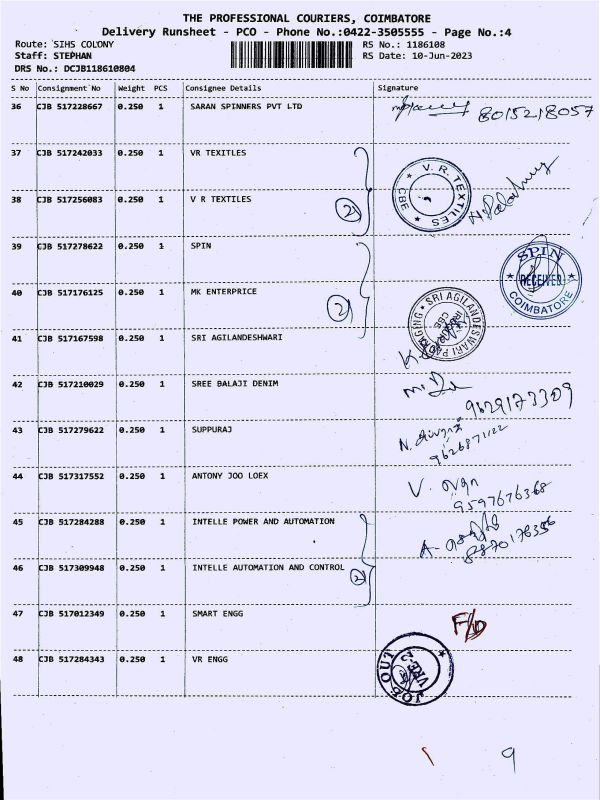 THE PROFESSIONAL COURIERS, COIMBATORE
Delivery Runsheet - PCO - Phone No.:0422-3505555 - Page No.:4
Route: SIHS COLONY RS No.: 1186108
Staff: STEPHAN RS Date: 10-Jun-2023
DRS No.: DCJB118610804
S No Consignment No Weight PCS Consignee Details Signature
36 CJB 517228667 0.250 1 SARAN SPINNERS PVT LTD 8015218057
37 CJB 517242033 0.250 1 VR TEXITLES
V. R. TEXTILES CBE
38 CJB 517256083 0.250 1 V R TEXTILES
2
39 CJB 517278622 0.250 1 SPIN
SPIN RECEIVED COIMBATORE
40 CJB 517176125 0.250 1 MK ENTERPRICE
2
SRI AGILANDESWARI PACKAGING CBE
41 CJB 517167598 0.250 1 SRI AGILANDESHWARI
42 CJB 517210029 0.250 1 SREE BALAJI DENIM
9629173309
43 CJB 517279622 0.250 1 SUPPURAJ N.
9626871122
44 CJB 517317552 0.250 1 ANTONY JOO LOEX V.
9597676368
45 CJB 517284288 0.250 1 INTELLE POWER AND AUTOMATION A.
8870176356
46 CJB 517309948 0.250 1 INTELLE AUTOMATION AND CONTROL 2
47 CJB 517012349 0.250 1 SMART ENGG F/D
48 CJB 517284343 0.250 1 VR ENGG
JOB OUT VRE-2
9